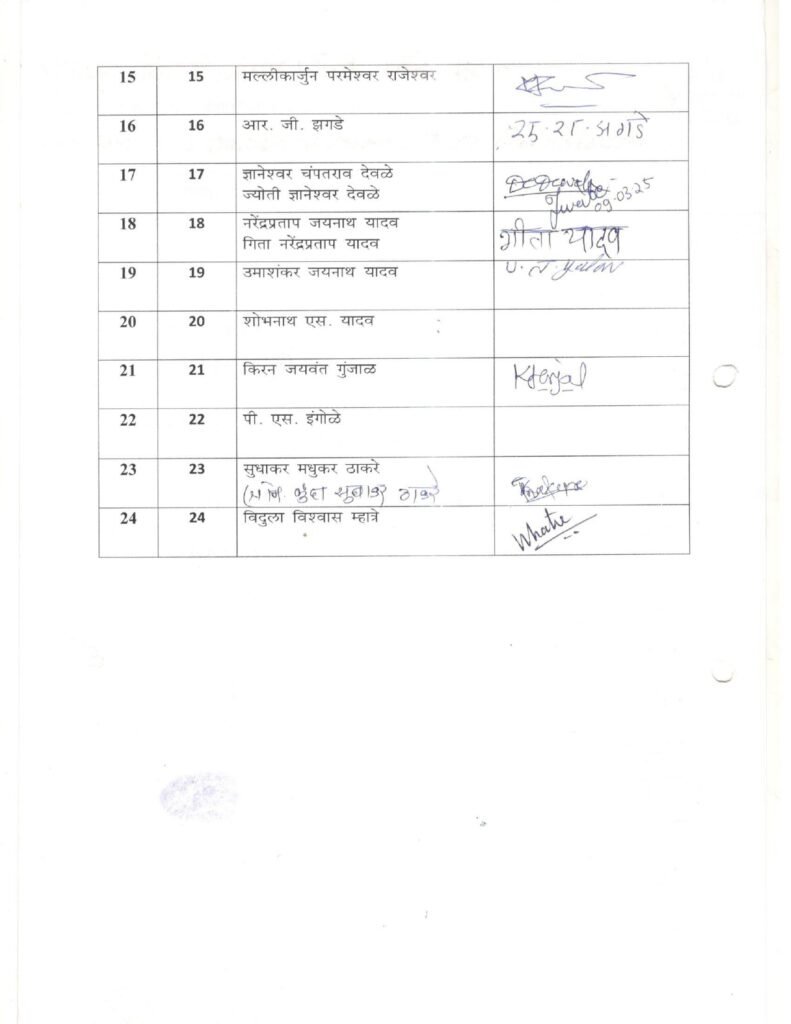 15 15 मल्लीकार्जुन परमेश्वर राजेश्वर
16 16 आर. जी. झगडे
झगडे
17 17 ज्ञानेश्वर चंपतराव देवळे
ज्योती ज्ञानेश्वर देवळे
09-03-25
18 18 नरेंद्रप्रताप जयनाथ यादव
गिता नरेंद्रप्रताप यादव
गीता यादव
19 19 उमाशंकर जयनाथ यादव
U. J. Yadav
20 20 शोभनाथ एस. यादव
21 21 किरन जयवंत गुंजाळ
22 22 पी. एस. इंगोळे
23 23 सुधाकर मधुकर ठाकरे
सुधाकर ठाकरे
24 24 विदुला विश्वास म्हात्रे